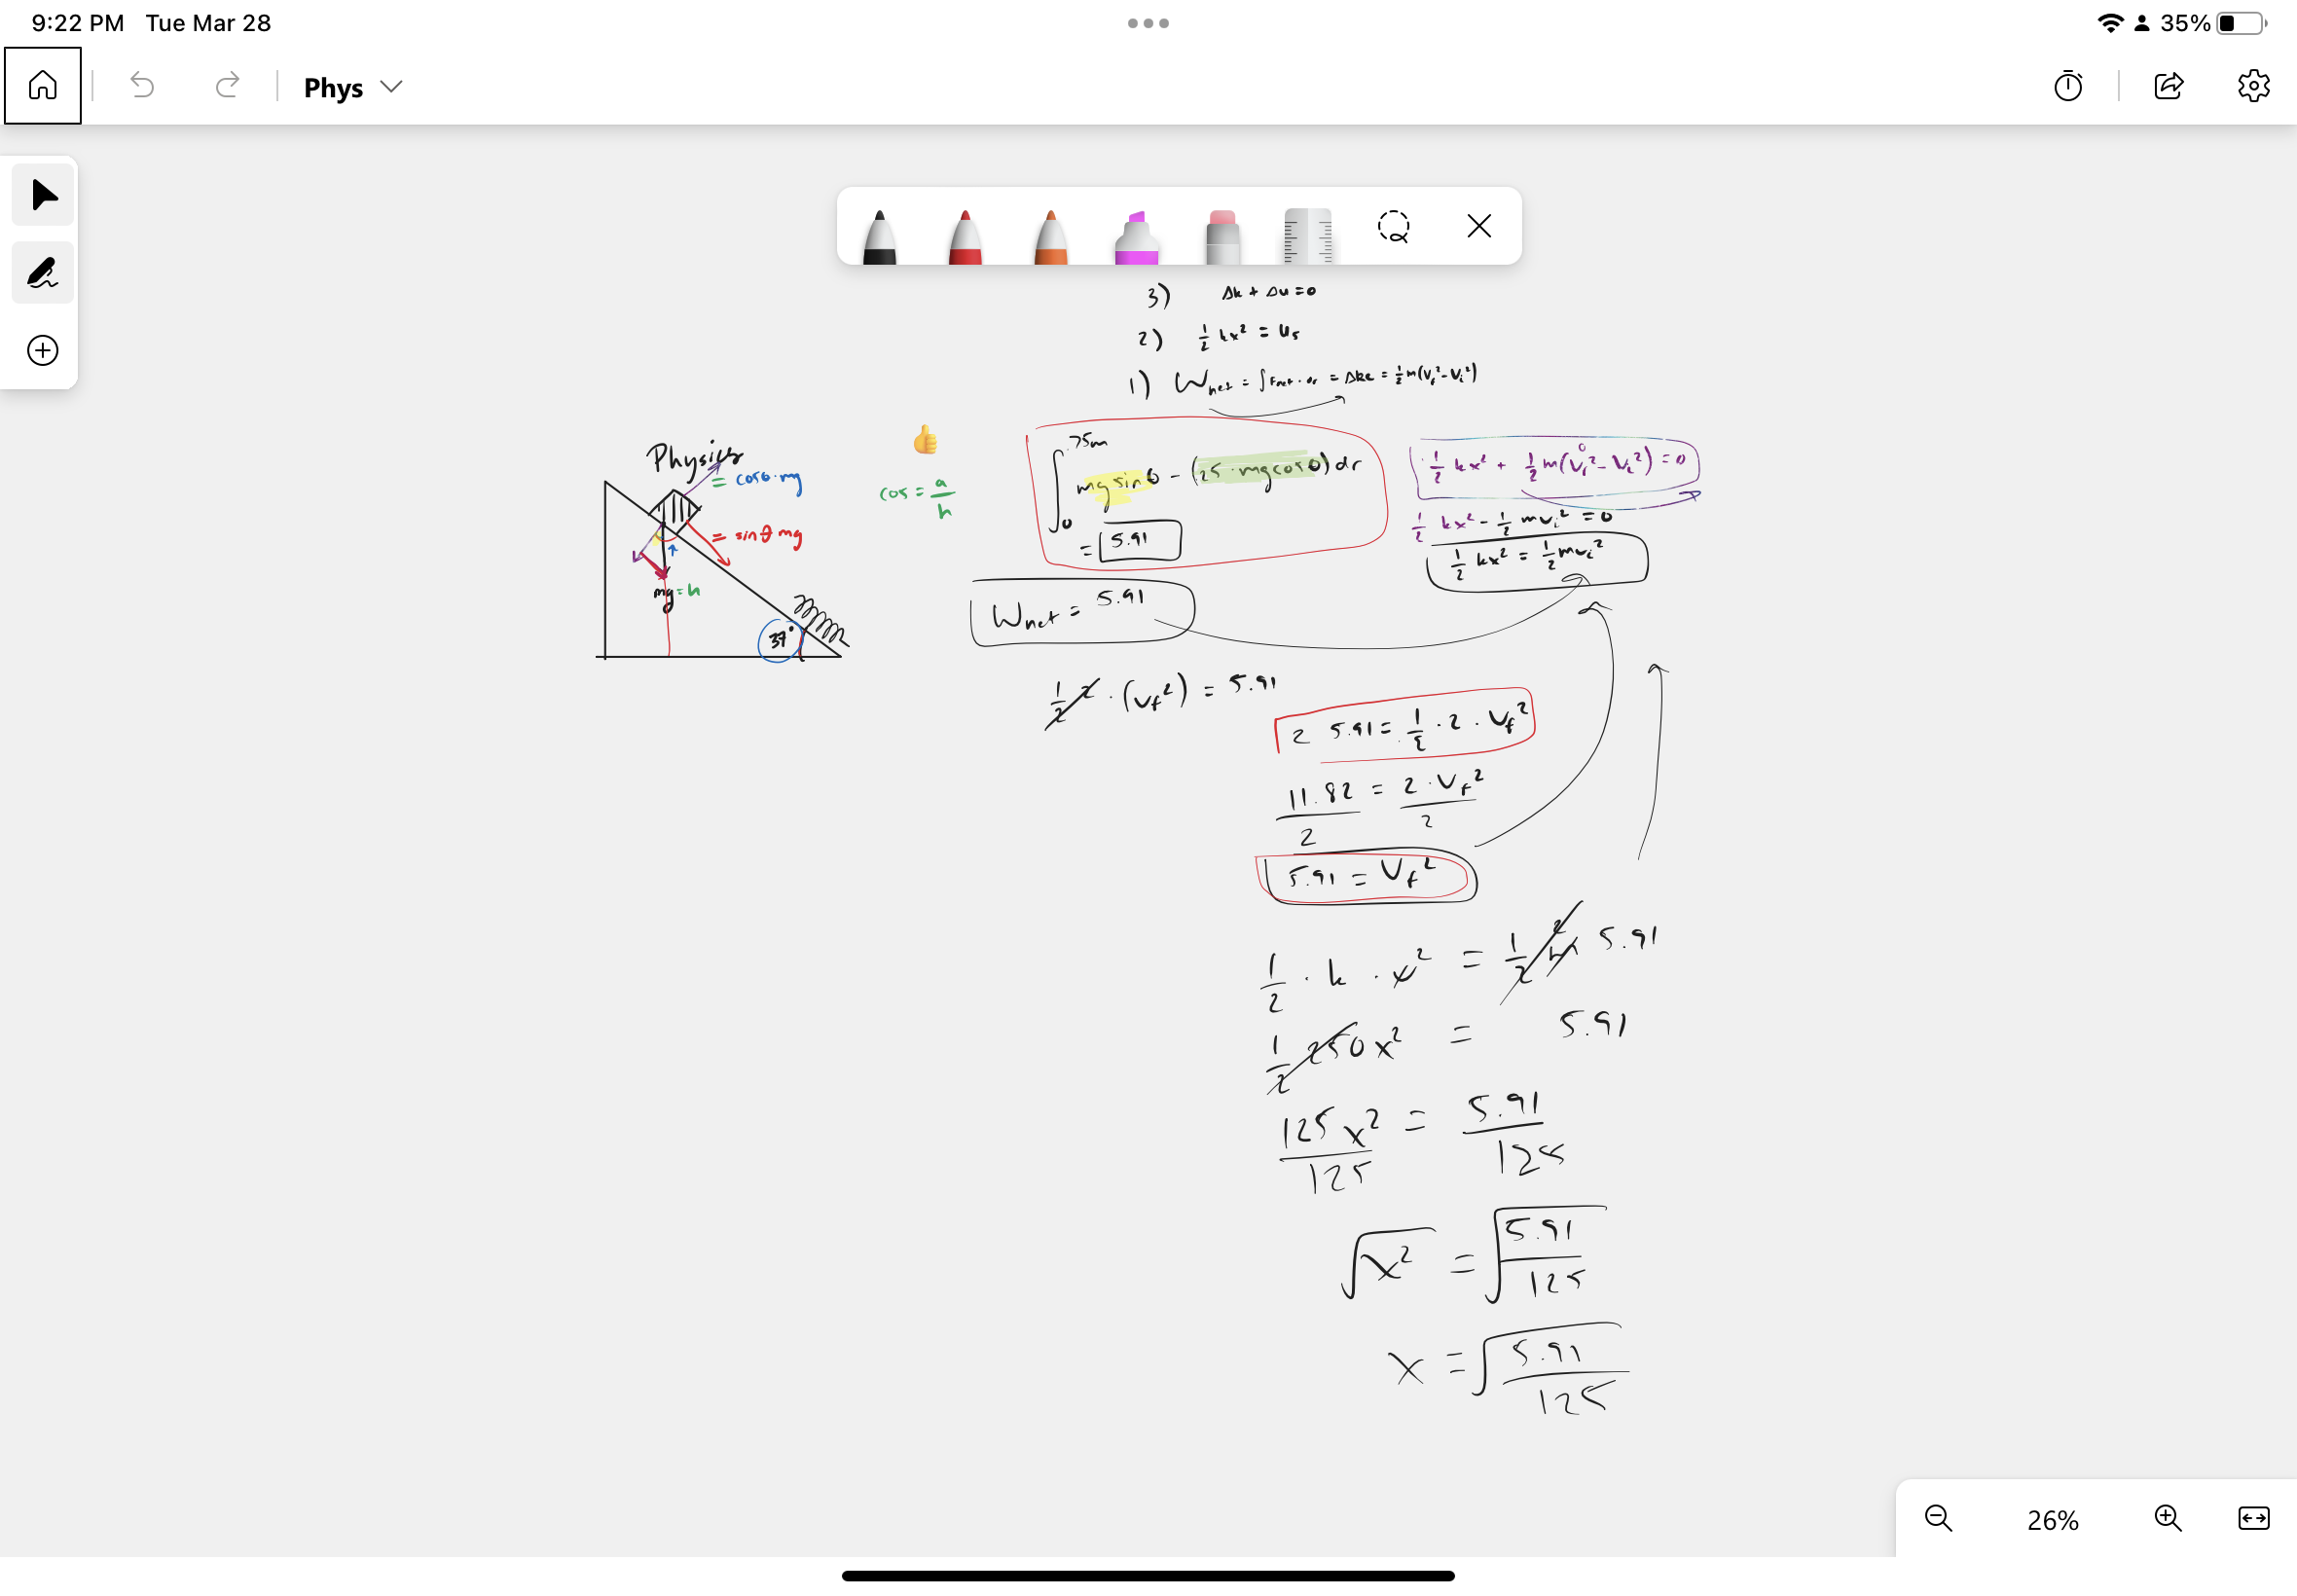 9:22 PM Tue Mar 28
35%
Phys
3) Δk + Δu = 0
2) 1/2 kx² = Us
1) Wnet = ∫Fnet · dr = Δke = 1/2 m(Vf² - Vi²)
Physics
= cosθ·mg
= sinθ mg
mg = h
37°
cos = a/h
∫₀^.75m mg sinθ - (.25 · mg cosθ) dr
= 5.91
1/2 kx² + 1/2 m(Vf² - Vi²) = 0
0
1/2 kx² - 1/2 mvi² = 0
1/2 kx² = 1/2 mvi²
Wnet = 5.91
1/2 2 · (vf²) = 5.91
2 5.91 = 1/2 · 2 · Vf²
11.82/2 = 2 · Vf²/2
5.91 = Vf²
1/2 · k · x² = 1/2 m 2 5.91
1/2 250x² = 5.91
125x²/125 = 5.91/125
√x² = √5.91/125
x = √5.91/125
26%